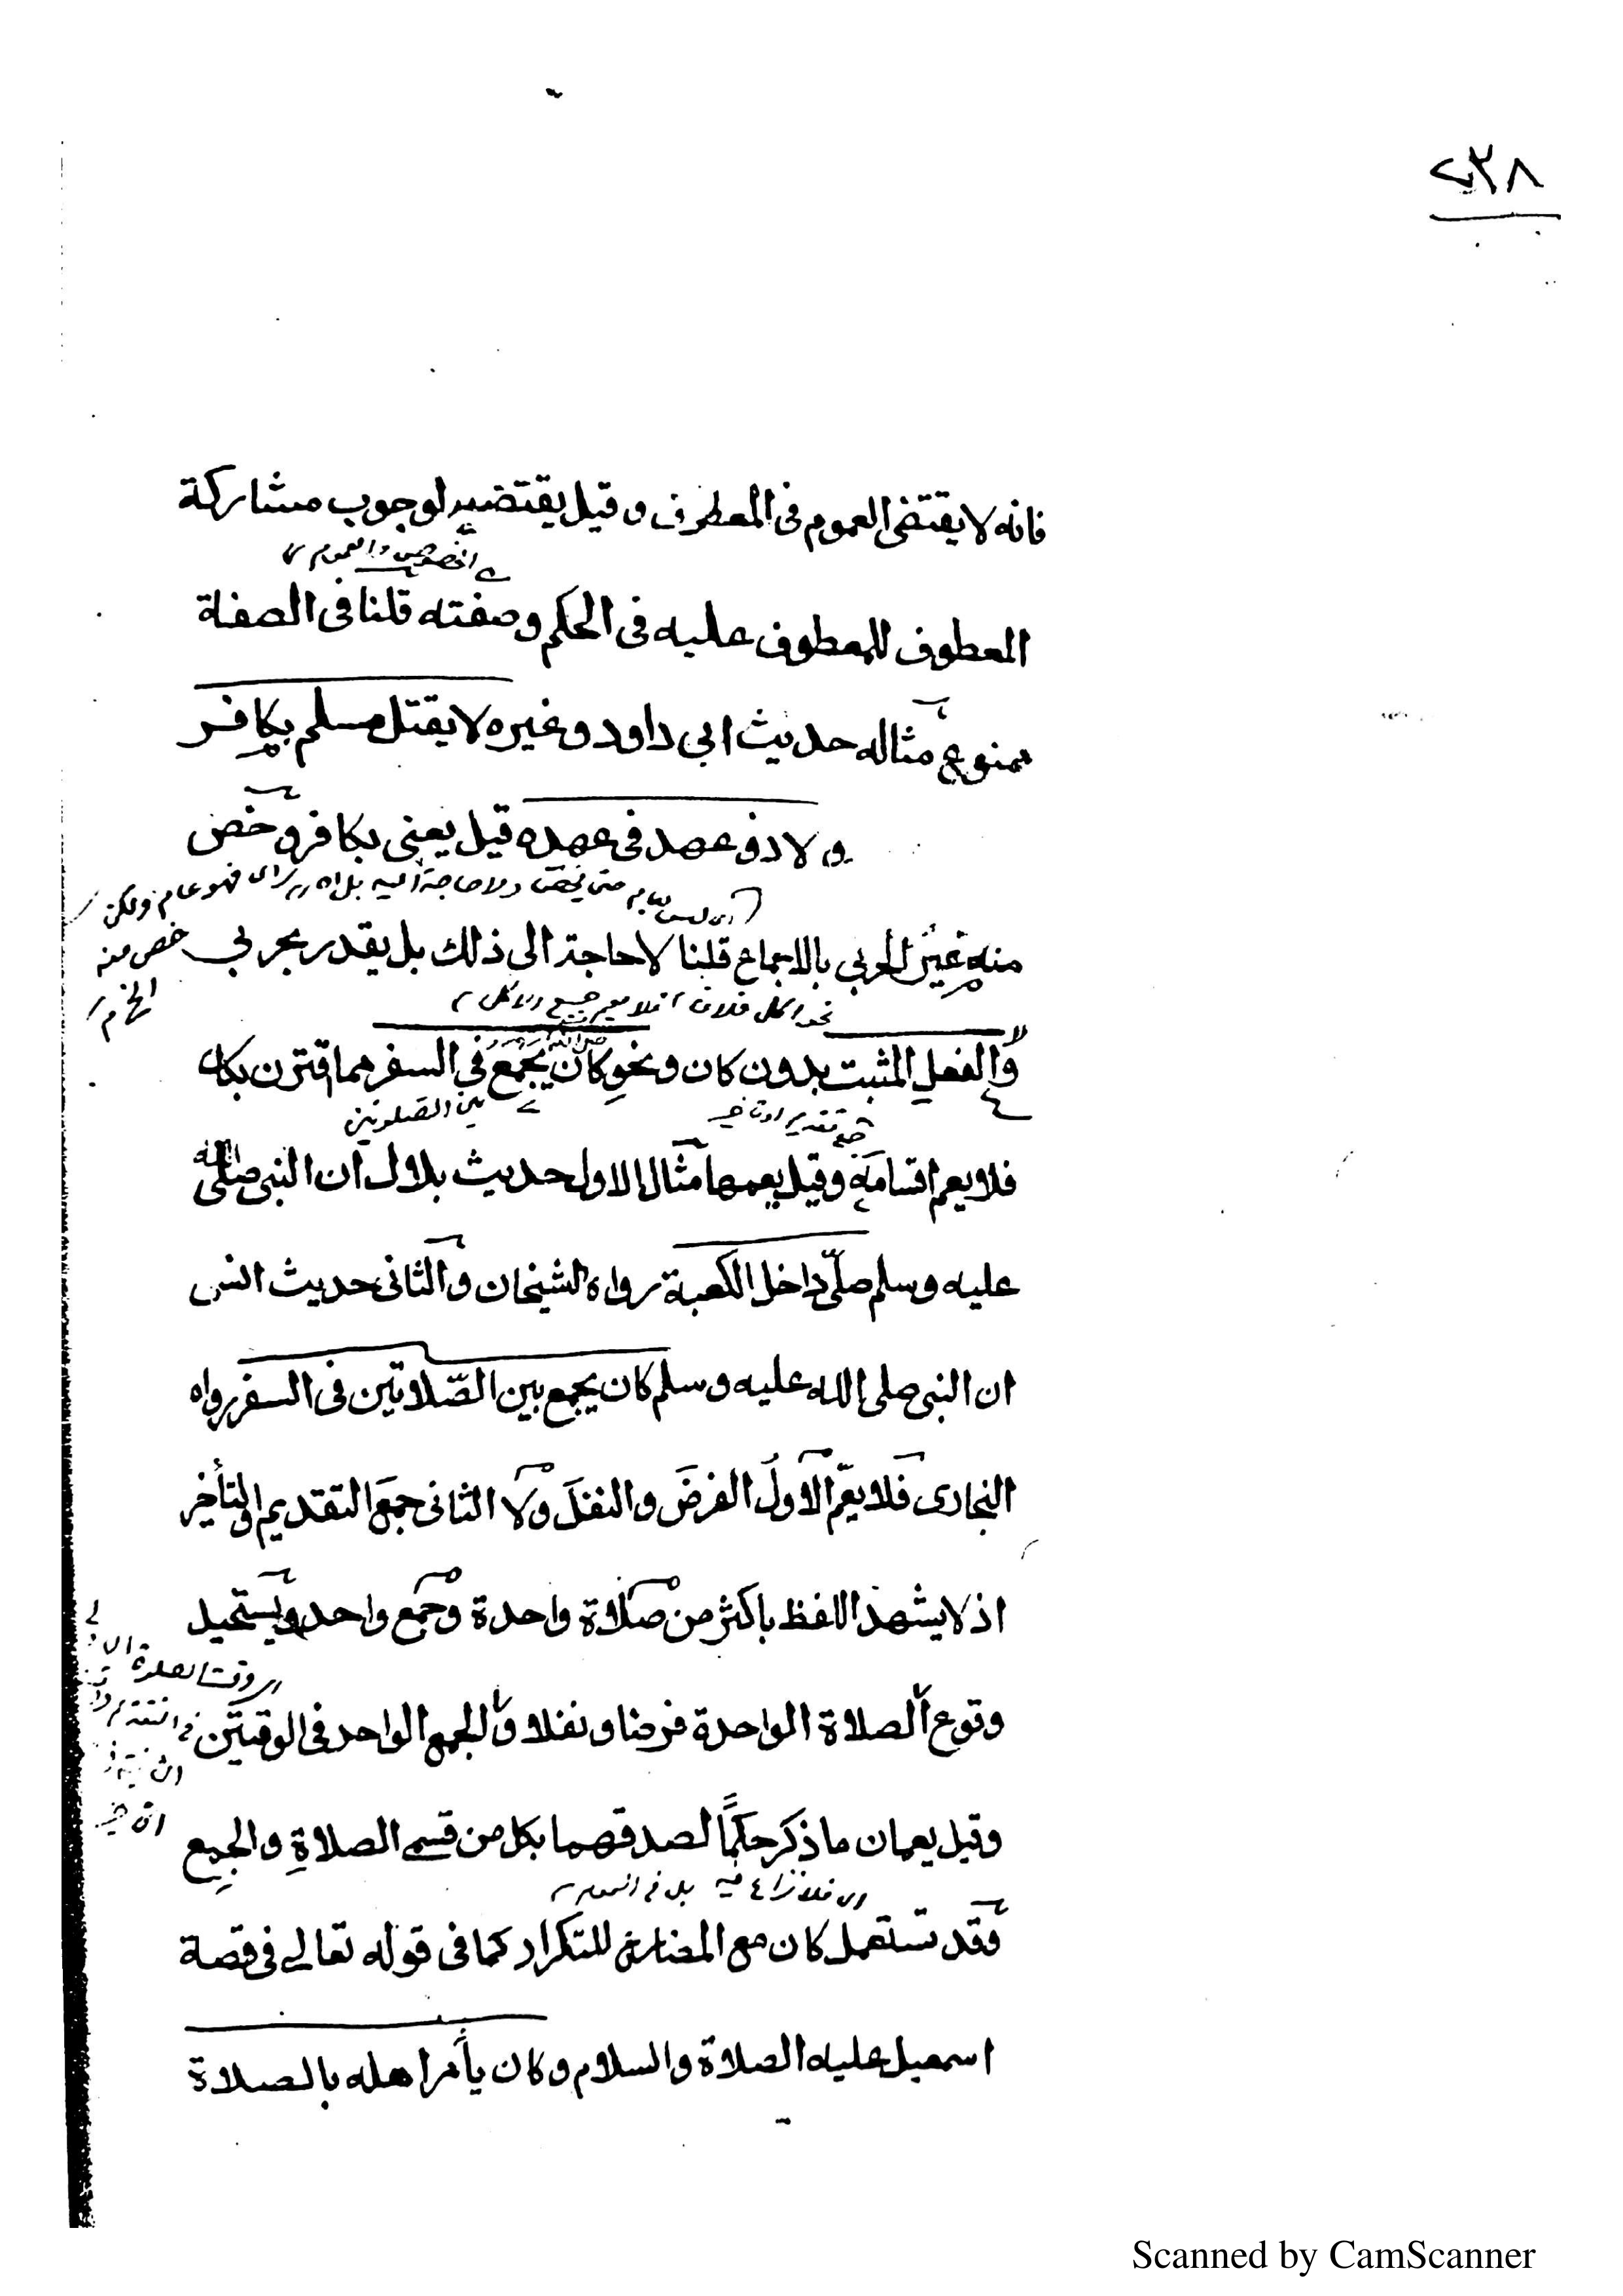 ٢٣٨
فانه لا يقتضى العموم فى المعطوف وقيل يقتضيه لوجوب مشاركة
المعطوف للمعطوف عليه فى الحكم وصفته قلنا فى الصفة
ممنوع مثاله حديث ابى داود وغيره لا يقتل مسلم بكافر
ولا ذو عهد فى عهده قيل يعنى بكافر وخص
منه غير الحربى بالاجماع قلنا لا حاجة الى ذلك بل يقدر بحربي
خص منه
والفعل المثبت بدون كان ونحو كان يجمع فى السفر مما اقترن بكان
بين الصلوتين
فلا يعم اقسامه وقيل يعمها مثال الاول حديث بلال ان النبى صلى الله
عليه وسلم صلّى داخل الكعبة رواه الشيخان والثانى حديث انس
ان النبى صلى الله عليه وسلم كان يجمع بين الصّلاتين فى السفر رواه
البخارى فلا يعمّ الاولُ الفرضَ والنفلَ ولا الثانى جمعَ التقديم والتأخير
اذ لا يشهد اللفظ باكثر من صلاة واحدة وجمع واحد ويستحيل
وقوع الصلاة الواحدة فرضا ونفلا والجمع الواحد فى الوقتين
وقيل يعمان ما ذكر حكمًا لصدقهما بكل من قسمى الصلاةِ والجمِع
فقد تستعمل كان مع المضارع للتكرار كما فى قوله تعالى فى قصة
اسمعيل عليه الصلاة والسلام وكان يأمر اهله بالصلاة
Scanned by CamScanner